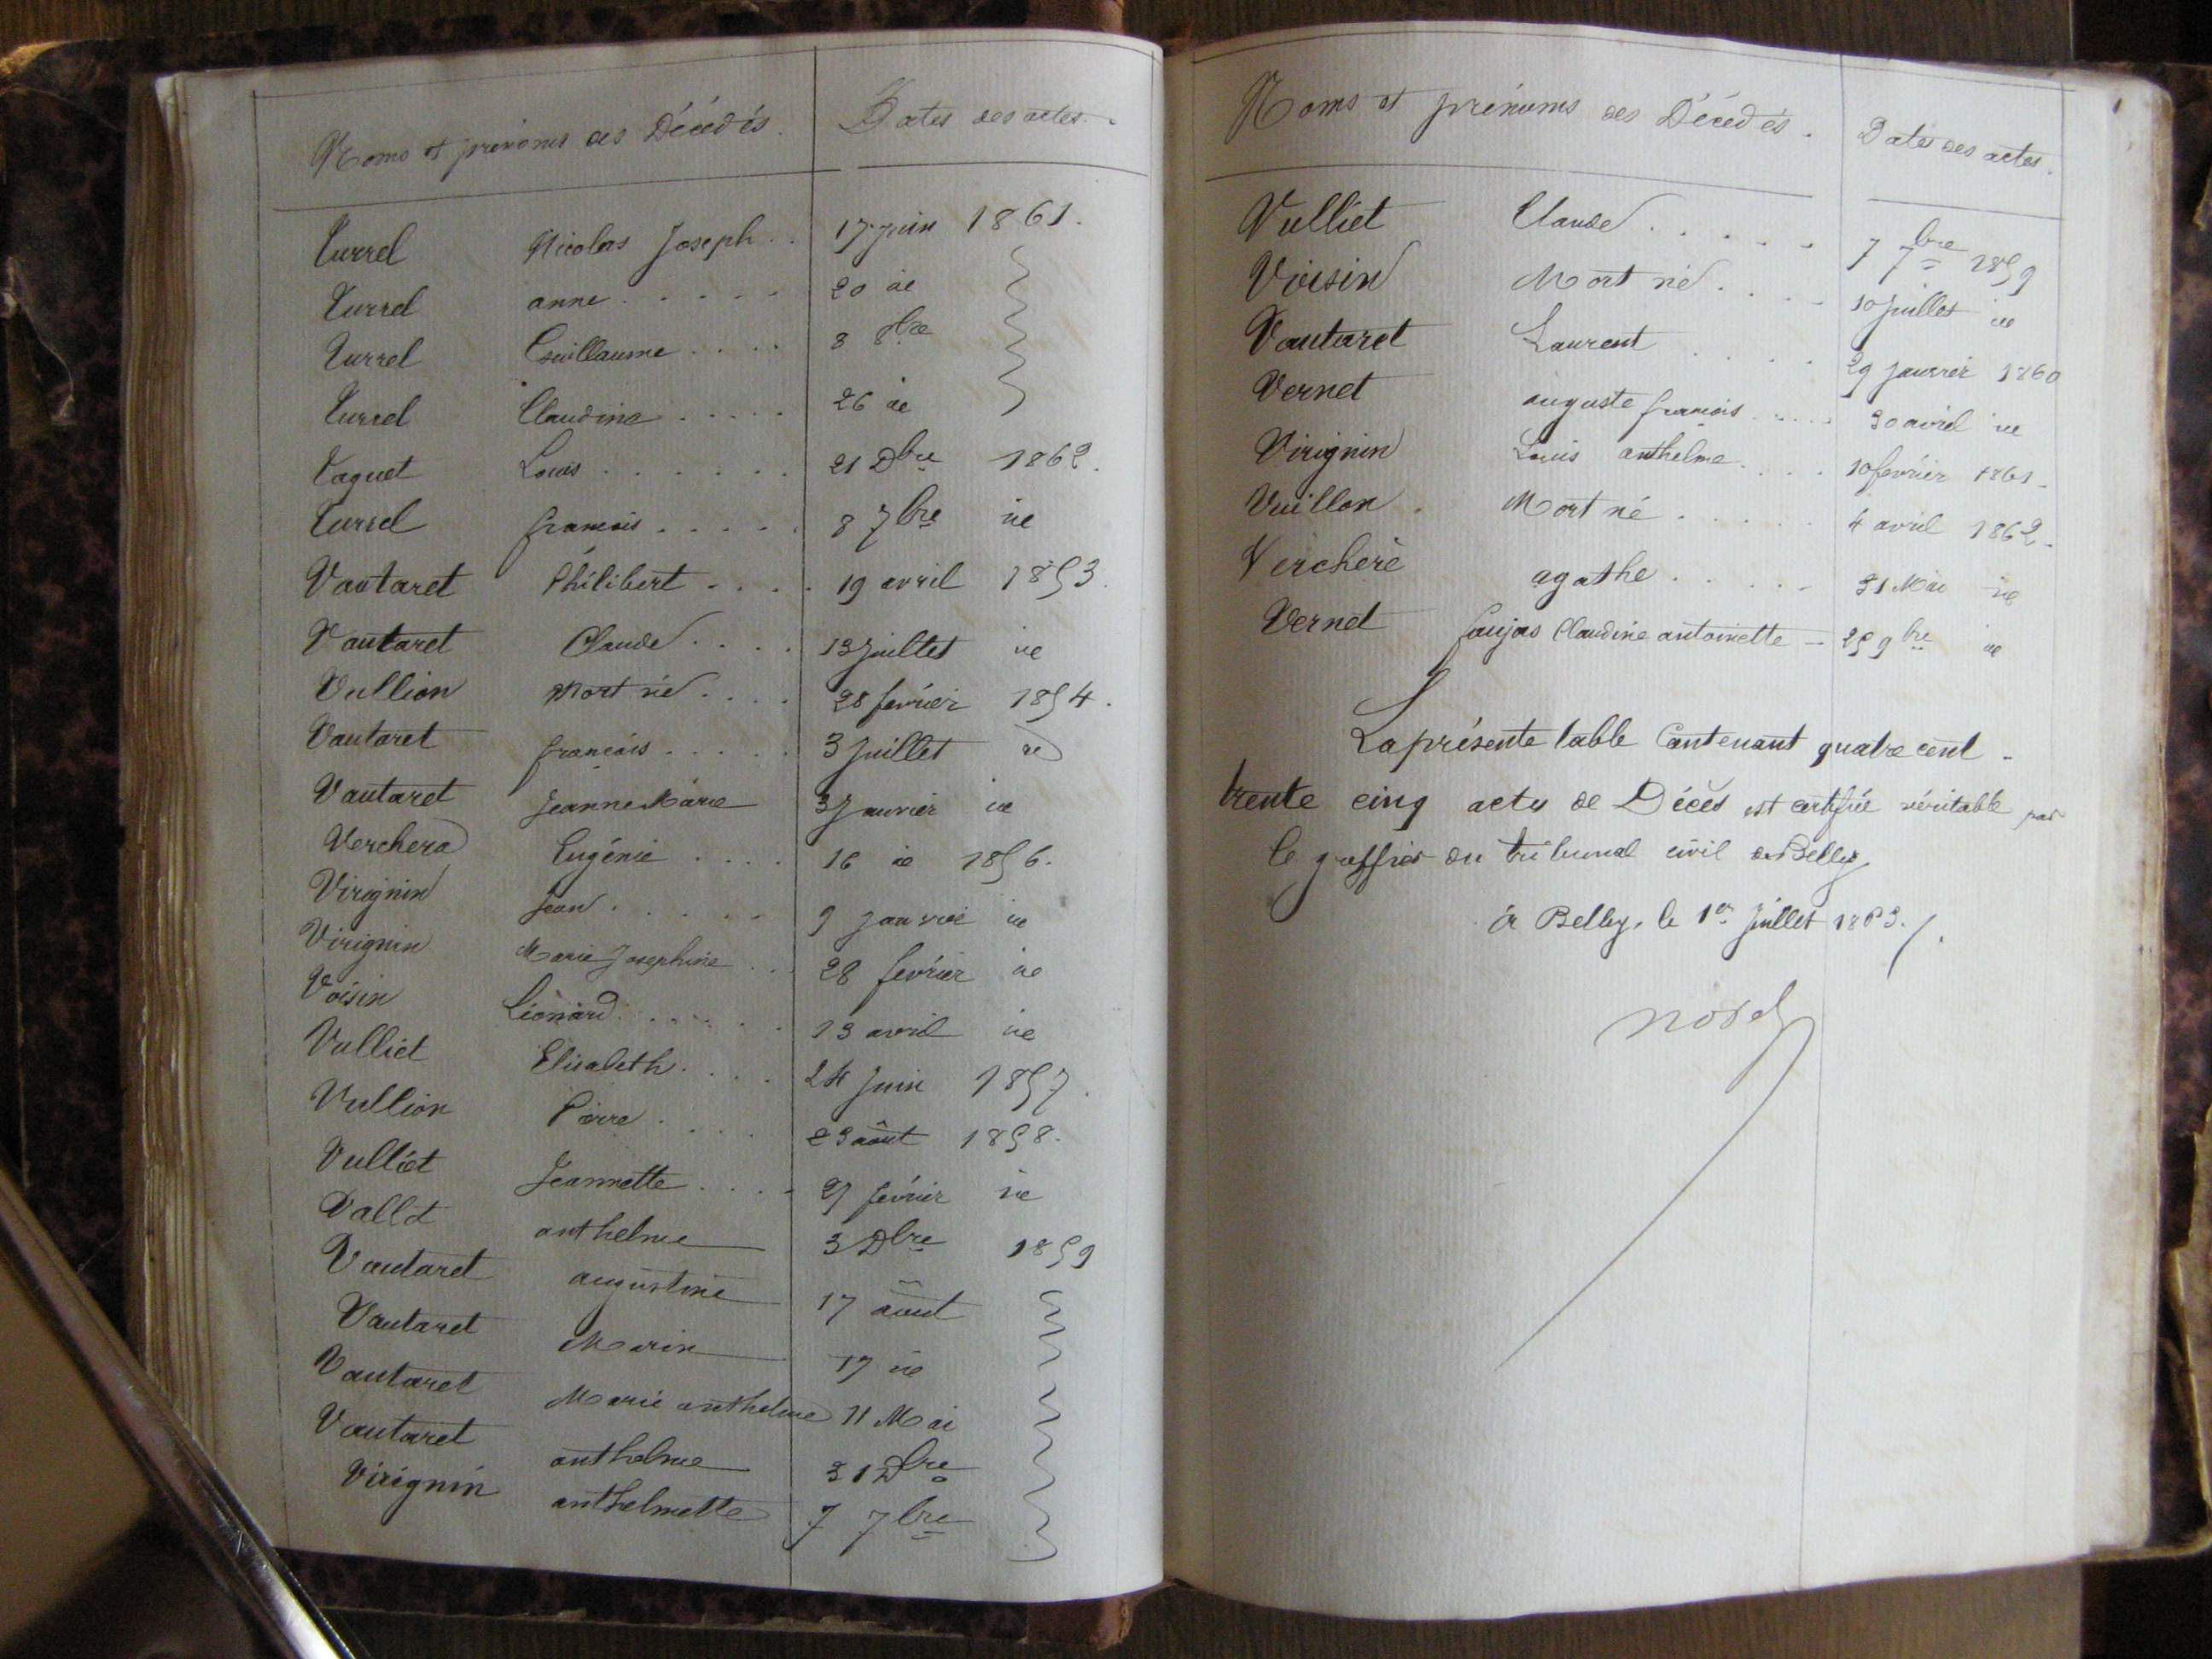 Noms et prénoms des Décédés. Dates des actes.
Turrel Nicolas Joseph . . 17 juin 1861.
Turrel anne . . . . . 20 id
Turrel Guillaume . . . . 8 8bre
Turrel Claudine . . . . . 26 id
Taquet Louis . . . . . . 21 Dbre 1862.
Turrel francois . . . . . 8 7bre id
Vautaret Philibert . . . . 19 avril 1853.
Vautaret Claude . . . . 13 juillet id
Vullion Mort né . . . . 28 février 1854.
Vautaret francois . . . . . 3 Juillet id
Vautaret Jeanne Marie 3 Janvier id
Verchera Eugénie . . . . 16 id 1856.
Virignin Jean . . . . . 9 Janvier id
Virignin Marie Josephine . . . 28 février id
Voisin Léonard . . . . . . 13 avril id
Vulliet Elisabeth . . . . 24 Juin 1857.
Vullion Pierre . . . . 23 août 1858.
Vulliet Jeannette . . . . 27 février id
Vallet anthelme 3 Dbre 1859
Vautaret augustine 17 août
Vautaret Marin 17 id
Vautaret Marie anthelme 11 Mai
Vautaret anthelme 31 Dbre
Virignin anthelmette 7 7bre
Noms et prénoms des Décédés. Dates des actes.
Vulliet Claude . . . . . 7 7bre 1859
Voisin Mort né . . . . 10 Juillet id
Vautaret Laurent . . . . 29 Janvier 1860
Vernet auguste francois . . . . . 30 avril id
Virignin Louis anthelme . . . . 10 février 1861.
Vuillon . Mort né . . . . . 4 avril 1862.
Verchere agathe . . . . . 31 Mai id
Vernet faujas Claudine antoinette — 25 9bre id
La présente table Contenant quatre cent
trente cinq actes de Décès est certifiée véritable par
le greffier du tribunal civil de Belley
à Belley, le 1er Juillet 1863. /.